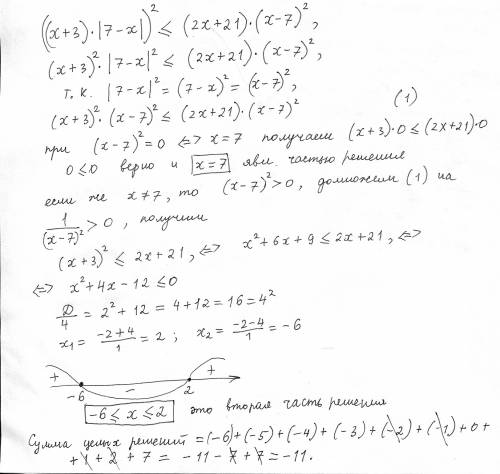 ((x+3)·|7-x|)² ≤ (2x+21)·(x-7)²,
(x+3)²·|7-x|² ≤ (2x+21)·(x-7)²,
т.к. |7-x|² = (7-x)² = (x-7)²,
(x+3)²·(x-7)² ≤ (2x+21)·(x-7)² (1)
при (x-7)²=0 <=> x=7 получаем (x+3)·0 ≤ (2x+21)·0
0≤0 верно и x=7 явл. частью решения
если же x≠7, то (x-7)²>0, домножем (1) на
1/(x-7)² > 0, получим
(x+3)² ≤ 2x+21, <=> x²+6x+9 ≤ 2x+21, <=>
<=> x²+4x-12 ≤ 0
D/4 = 2²+12 = 4+12 = 16 = 4²
x₁ = (-2+4)/1 = 2; x₂ = (-2-4)/1 = -6
+ - +
-6 2
-6 ≤ x ≤ 2 это вторая часть решения
Сумма целых решений = (-6)+(-5)+(-4)+(-3)+(-2)+(-1)+0+
+1+2+7 = -11-7+7 = -11.